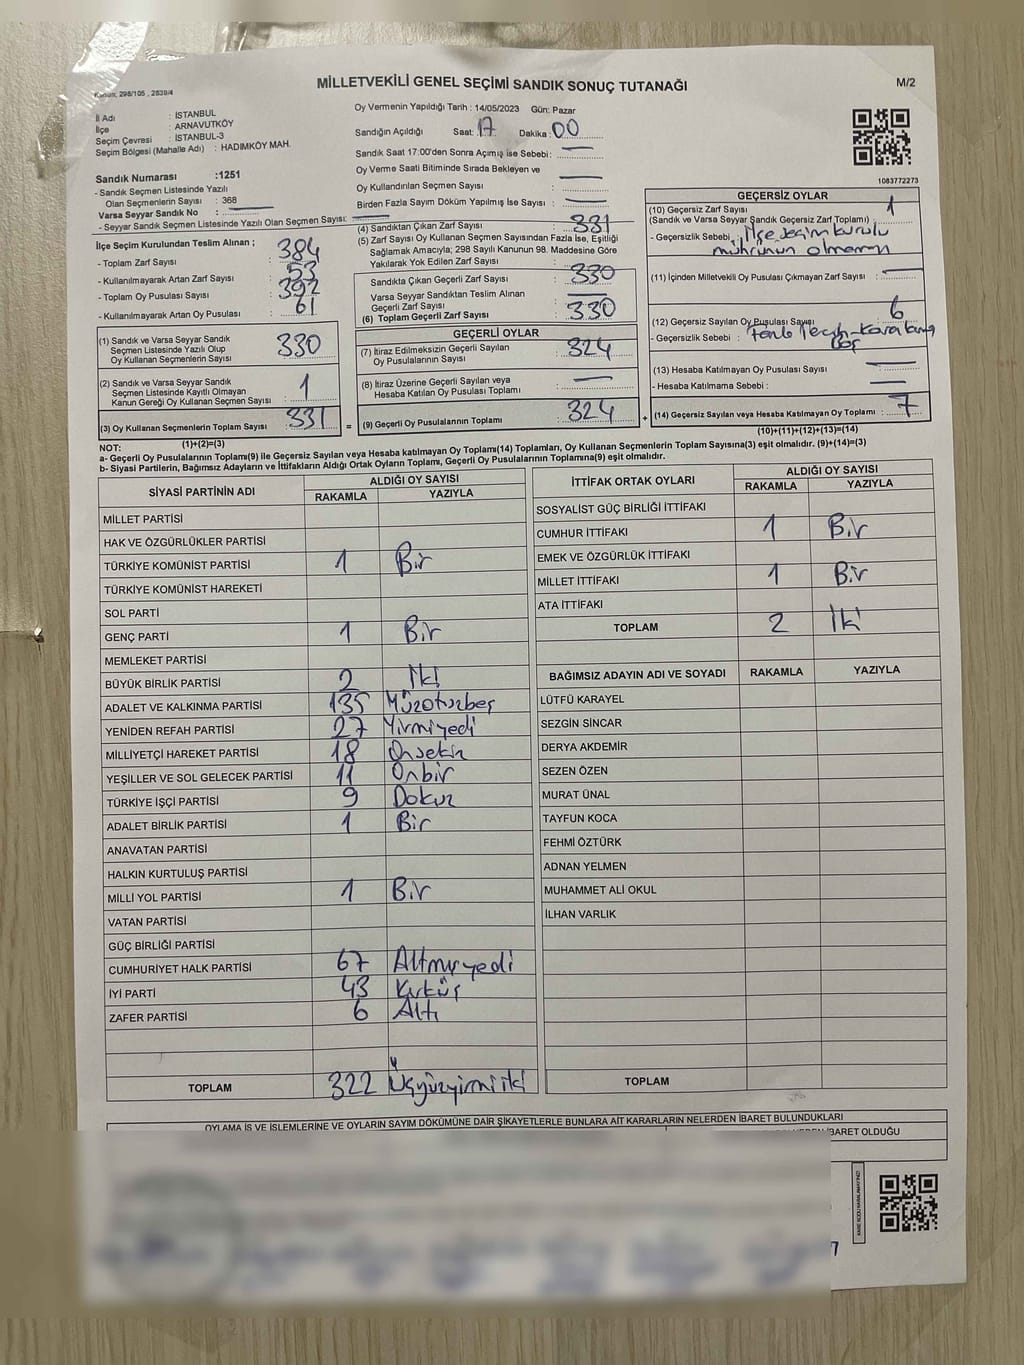 Kanun: 298/105 , 2839/4
MİLLETVEKİLİ GENEL SEÇİMİ SANDIK SONUÇ TUTANAĞI
M/2
İl Adı : İSTANBUL
İlçe : ARNAVUTKÖY
Seçim Çevresi : İSTANBUL-3
Seçim Bölgesi (Mahalle Adı) : HADIMKÖY MAH.
Sandık Numarası :1251
- Sandık Seçmen Listesinde Yazılı
Olan Seçmenlerin Sayısı : 368
Varsa Seyyar Sandık No :
- Seyyar Sandık Seçmen Listesinde Yazılı Olan Seçmen Sayısı:
Oy Vermenin Yapıldığı Tarih : 14/05/2023 Gün: Pazar
Sandığın Açıldığı Saat: 17 Dakika : 00
Sandık Saat 17:00'den Sonra Açımış İse Sebebi:
Oy Verme Saati Bitiminde Sırada Bekleyen ve
Oy Kullandırılan Seçmen Sayısı :
Birden Fazla Sayım Döküm Yapılmış İse Sayısı :
1083772273
İlçe Seçim Kurulundan Teslim Alınan ;
- Toplam Zarf Sayısı : 384
- Kullanılmayarak Artan Zarf Sayısı : 53
- Toplam Oy Pusulası Sayısı : 392
- Kullanılmayarak Artan Oy Pusulası : 61
(1) Sandık ve Varsa Seyyar Sandık
Seçmen Listesinde Yazılı Olup
Oy Kullanan Seçmenlerin Sayısı : 330
(2) Sandık ve Varsa Seyyar Sandık
Seçmen Listesinde Kayıtlı Olmayan
Kanun Gereği Oy Kullanan Seçmen Sayısı : 1
(3) Oy Kullanan Seçmenlerin Toplam Sayısı : 331
(1)+(2)=(3)
(4) Sandıktan Çıkan Zarf Sayısı : 331
(5) Zarf Sayısı Oy Kullanan Seçmen Sayısından Fazla İse, Eşitliği
Sağlamak Amacıyla; 298 Sayılı Kanunun 98. Maddesine Göre
Yakılarak Yok Edilen Zarf Sayısı :
Sandıkta Çıkan Geçerli Zarf Sayısı : 330
Varsa Seyyar Sandıktan Teslim Alınan
Geçerli Zarf Sayısı :
(6) Toplam Geçerli Zarf Sayısı : 330
GEÇERLİ OYLAR
(7) İtiraz Edilmeksizin Geçerli Sayılan
Oy Pusulalarının Sayısı : 324
(8) İtiraz Üzerine Geçerli Sayılan veya
Hesaba Katılan Oy Pusulası Toplamı :
= (9) Geçerli Oy Pusulalarının Toplamı : 324 +
GEÇERSİZ OYLAR
(10) Geçersiz Zarf Sayısı
(Sandık ve Varsa Seyyar Sandık Geçersiz Zarf Toplamı) : 1
- Geçersizlik Sebebi : İlçe seçim kurulu
mührünün olmaması
(11) İçinden Milletvekili Oy Pusulası Çıkmayan Zarf Sayısı :
(12) Geçersiz Sayılan Oy Pusulası Sayısı : 6
- Geçersizlik Sebebi :
(13) Hesaba Katılmayan Oy Pusulası Sayısı :
- Hesaba Katılmama Sebebi :
(14) Geçersiz Sayılan veya Hesaba Katılmayan Oy Toplamı : 7
(10)+(11)+(12)+(13)=(14)
NOT:
a- Geçerli Oy Pusulalarının Toplamı(9) ile Geçersiz Sayılan veya Hesaba katılmayan Oy Toplamı(14) Toplamları, Oy Kullanan Seçmenlerin Toplam Sayısına(3) eşit olmalıdır. (9)+(14)=(3)
b- Siyasi Partilerin, Bağımsız Adayların ve İttifakların Aldığı Ortak Oyların Toplamı, Geçerli Oy Pusulalarının Toplamına(9) eşit olmalıdır.
SİYASİ PARTİNİN ADI ALDIĞI OY SAYISI
RAKAMLA YAZIYLA
MİLLET PARTİSİ
HAK VE ÖZGÜRLÜKLER PARTİSİ
TÜRKİYE KOMÜNİST PARTİSİ 1 Bir
TÜRKİYE KOMÜNİST HAREKETİ
SOL PARTİ
GENÇ PARTİ 1 Bir
MEMLEKET PARTİSİ
BÜYÜK BİRLİK PARTİSİ 2 İki
ADALET VE KALKINMA PARTİSİ 135 Yüzotuzbeş
YENİDEN REFAH PARTİSİ 27 Yirmiyedi
MİLLİYETÇİ HAREKET PARTİSİ 18 Onsekiz
YEŞİLLER VE SOL GELECEK PARTİSİ 11 Onbir
TÜRKİYE İŞÇİ PARTİSİ 9 Dokuz
ADALET BİRLİK PARTİSİ 1 Bir
ANAVATAN PARTİSİ
HALKIN KURTULUŞ PARTİSİ
MİLLİ YOL PARTİSİ 1 Bir
VATAN PARTİSİ
GÜÇ BİRLİĞİ PARTİSİ
CUMHURİYET HALK PARTİSİ 67 Altmışyedi
İYİ PARTİ 43 Kırküç
ZAFER PARTİSİ 6 Altı
TOPLAM 322 Üçyüzyirmiiki
İTTİFAK ORTAK OYLARI ALDIĞI OY SAYISI
RAKAMLA YAZIYLA
SOSYALİST GÜÇ BİRLİĞİ İTTİFAKI
CUMHUR İTTİFAKI 1 Bir
EMEK VE ÖZGÜRLÜK İTTİFAKI
MİLLET İTTİFAKI 1 Bir
ATA İTTİFAKI
TOPLAM 2 İki
BAĞIMSIZ ADAYIN ADI VE SOYADI RAKAMLA YAZIYLA
LÜTFÜ KARAYEL
SEZGİN SİNCAR
DERYA AKDEMİR
SEZEN ÖZEN
MURAT ÜNAL
TAYFUN KOCA
FEHMİ ÖZTÜRK
ADNAN YELMEN
MUHAMMET ALİ OKUL
İLHAN VARLIK
TOPLAM
OYLAMA İŞ VE İŞLEMLERİNE VE OYLARIN SAYIM DÖKÜMÜNE DAİR ŞİKAYETLERLE BUNLARA AİT KARARLARIN NELERDEN İBARET BULUNDUKLARI
İBARET OLDUĞU